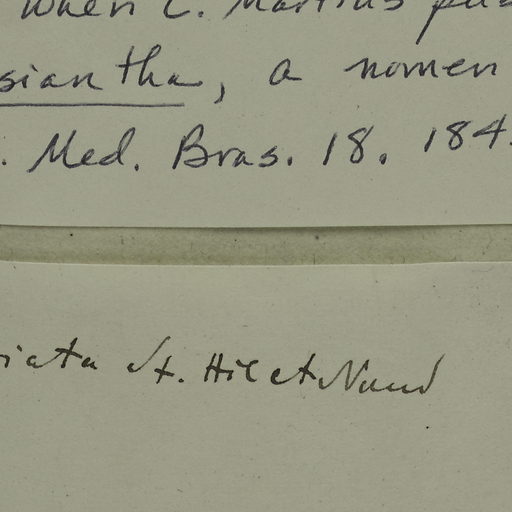 when C. Martius pu
siantha, a nomen
. Med. Bras. 18. 184
iata St. Hil et Naud